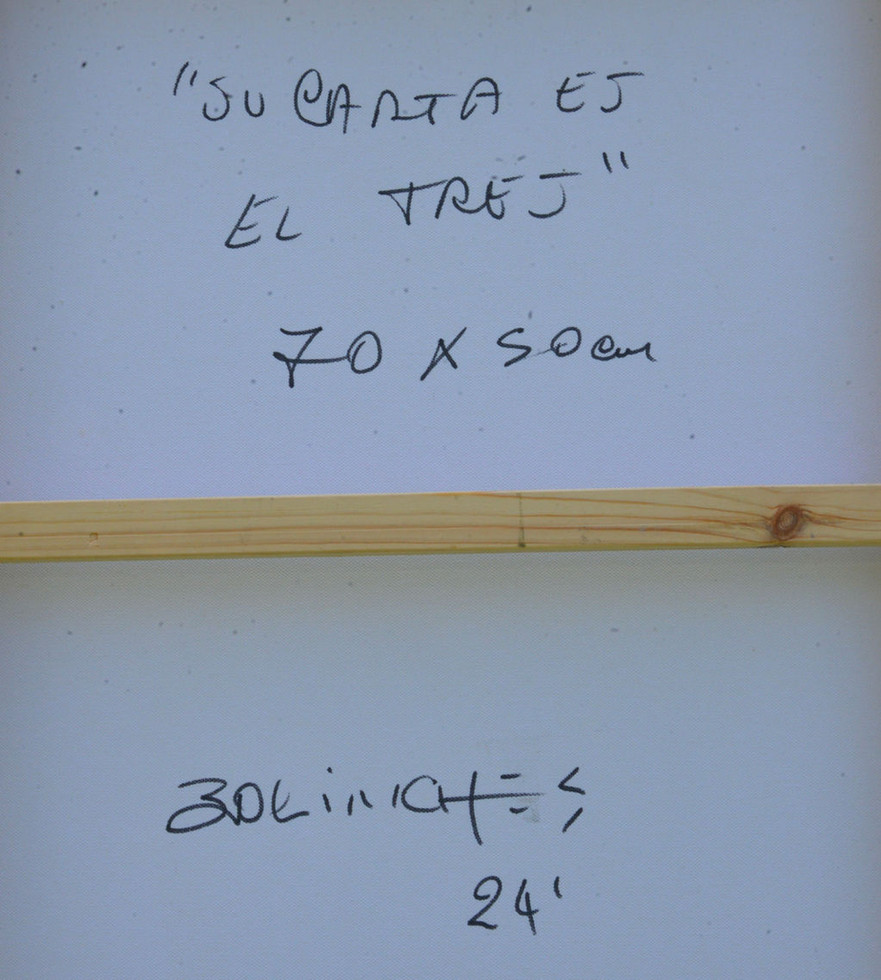 "SU CARTA ES
EL TRES"
70 X 50 cm
BOLINCHES
24'